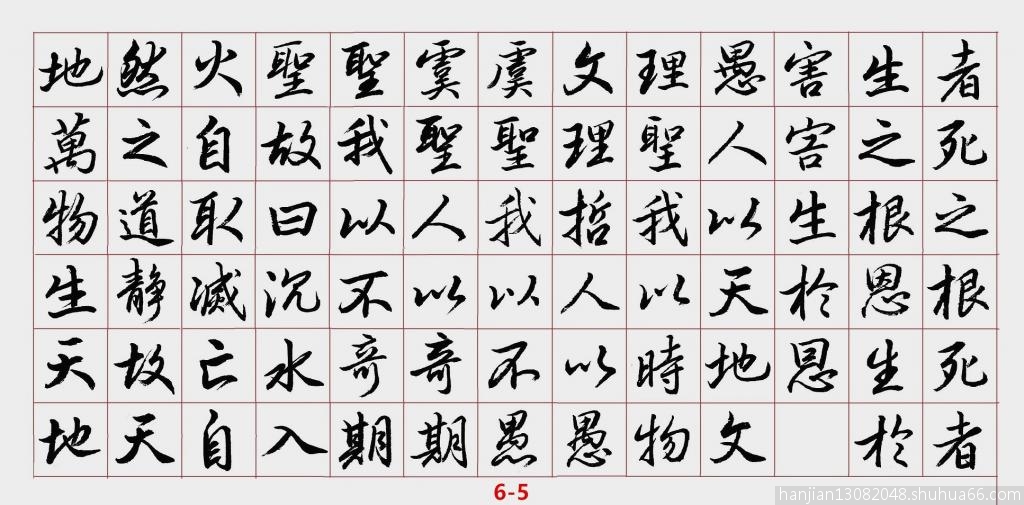 者死之根死者
生之根恩生於
害害生於恩
愚人以天地文
理聖我以時物
文理哲人以愚
虞聖我以不愚
虞聖人以奇期
聖我以不奇期
聖故曰沉水入
火自取滅亡自
然之道静故天
地萬物生天地
6-5
hanjian13082048.shuhua66.com